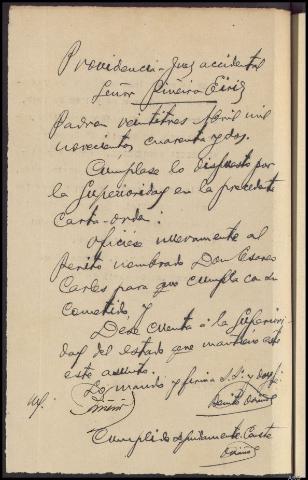 Providencia - Juez accidental
Señor Piñeiro Eiriz
Padron veintitres Abril mil
novecientos cuarenta y dos.
Cumplase lo dispuesto por
la Superioridad en la precedente
Carta-orden:
Oficiese nuevamente al
Perito nombrado Don Cesareo
Carles para que cumpla con su
cometido, y
Dése cuenta á la Superiori-
dad del estado que mantiene
este asunto.
Lo mandó y firma S.Sª. y doy fé.
Cumplido seguidamente. Conste